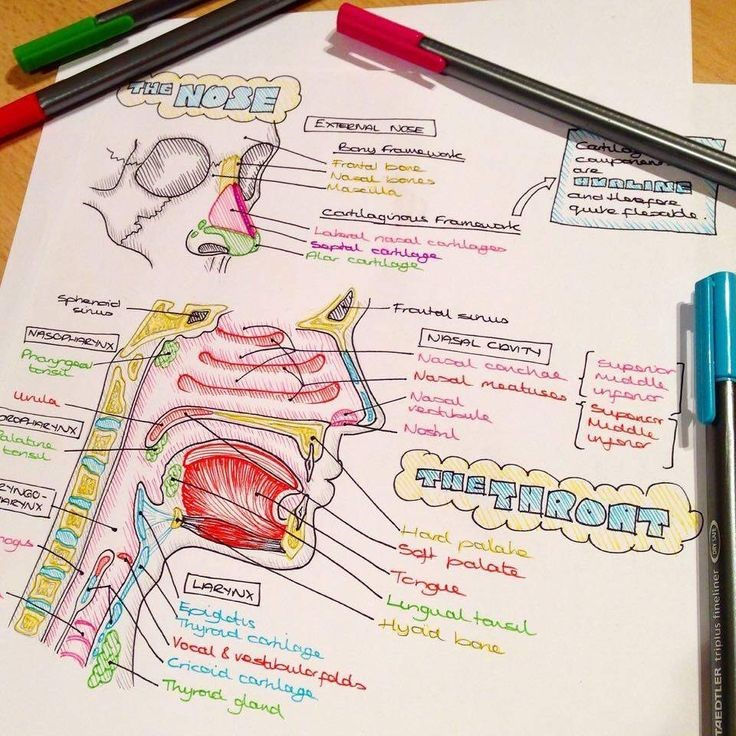 THE NOSE
EXTERNAL NOSE
Bony Framework
Frontal bone
Nasal bones
Maxilla
Cartilaginous Framework
Lateral nasal cartilages
Septal cartilage
Alar cartilage
components
are
HYALINE
and therefore
quite flexible.
Sphenoid
sinus
Frontal sinus
NASOPHARYNX
Pharyngeal
tonsil
Uvula
OROPHARYNX
Palatine
tonsil
NASAL CAVITY
Nasal conchae
Superior
Middle
inferior
Nasal meatuses
Superior
Middle
inferior
Nasal
vestibule
Nostril
THE THROAT
Hard palate
Soft palate
Tongue
Lingual tonsil
Hyoid bone
LARYNX
Epiglotis
Thyroid cartilage
Vocal & vestibular folds
Cricoid cartilage
Thyroid gland
STAEDTLER triplus fineliner
DRY SAFE